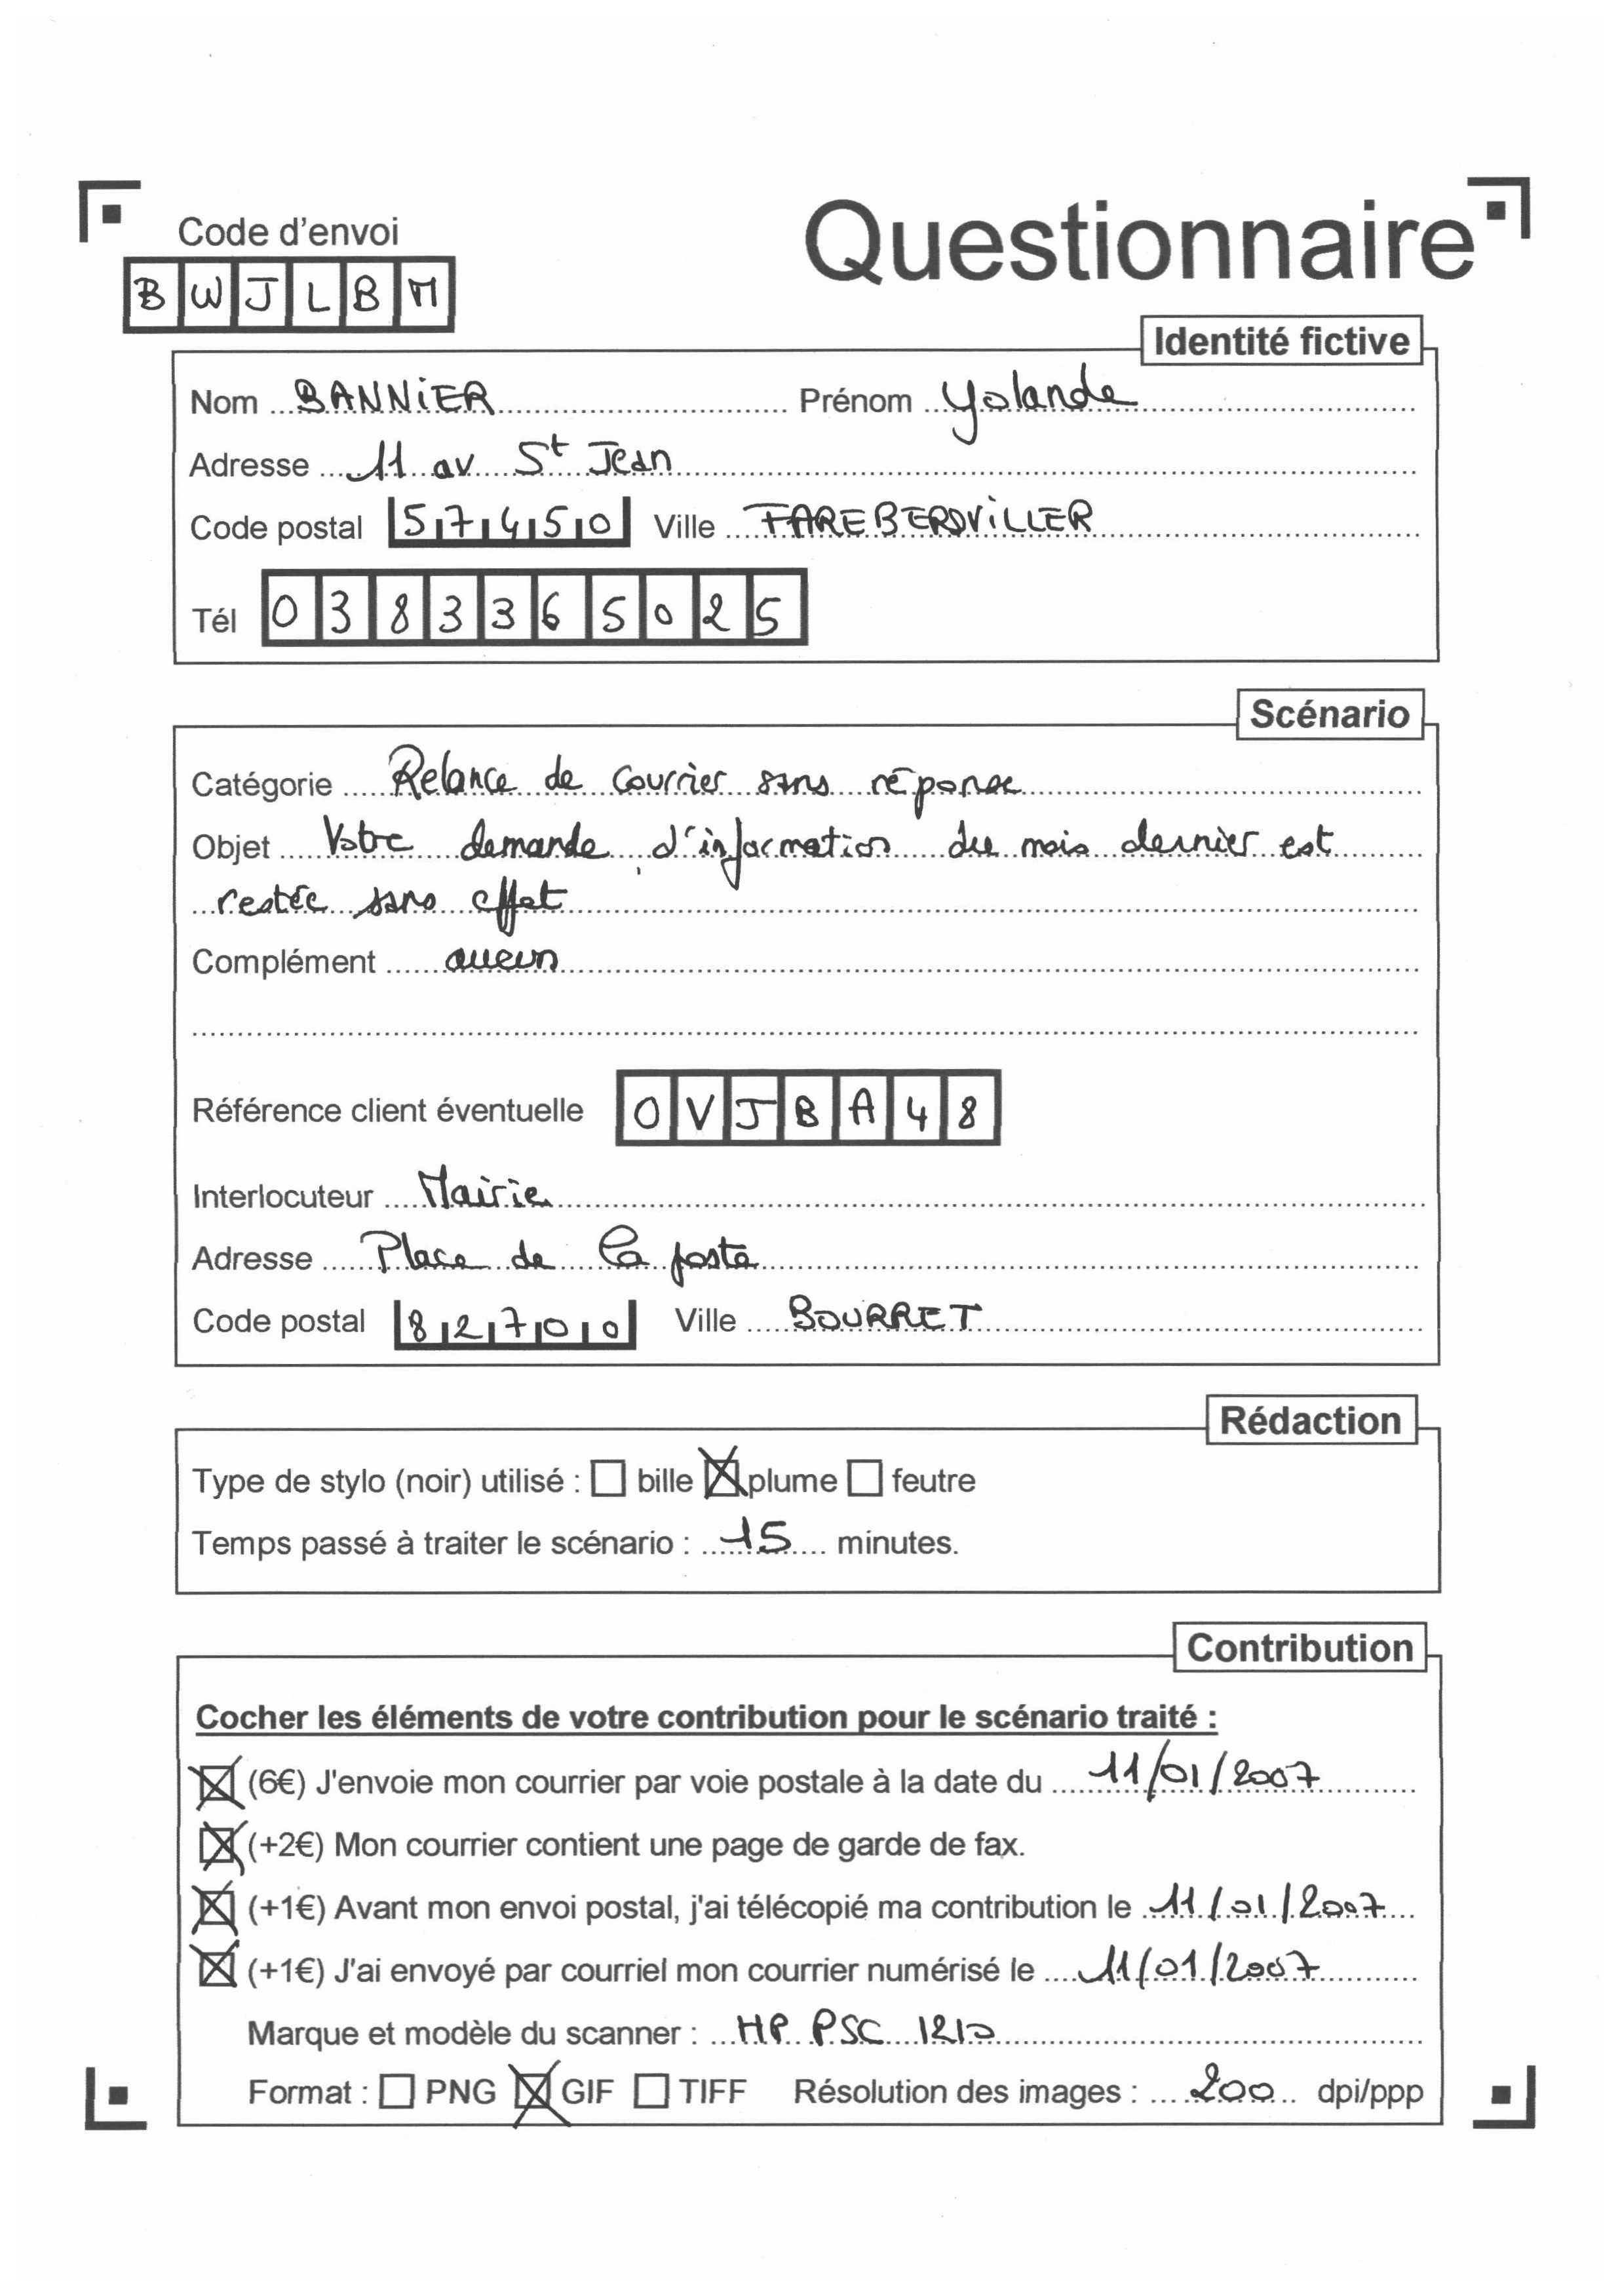 Code d'envoi
Questionnaire
BWJLBM
Identité fictive
Nom BANNIER Prénom Yolande
Adresse 11 av St Jean
Code postal 57450 Ville FAREBERDVILLER
Tél 0383365025
Scénario
Catégorie Relance de courrier sans réponse
Objet Votre demande d'information du mois dernier est
restée sans effet
Complément aucun
Référence client éventuelle OVJBA48
Interlocuteur Mairie
Adresse Place de la poste
Code postal 82700 Ville BOURRET
Rédaction
Type de stylo (noir) utilisé : bille plume feutre
Temps passé à traiter le scénario : 15 minutes.
Contribution
Cocher les éléments de votre contribution pour le scénario traité :
(6€) J'envoie mon courrier par voie postale à la date du 11/01/2007
(+2€) Mon courrier contient une page de garde de fax.
(+1€) Avant mon envoi postal, j'ai télécopié ma contribution le 11/01/2007
(+1€) J'ai envoyé par courriel mon courrier numérisé le 11/01/2007
Marque et modèle du scanner : HP PSC 1210
Format : PNG GIF TIFF Résolution des images : 200 dpi/ppp